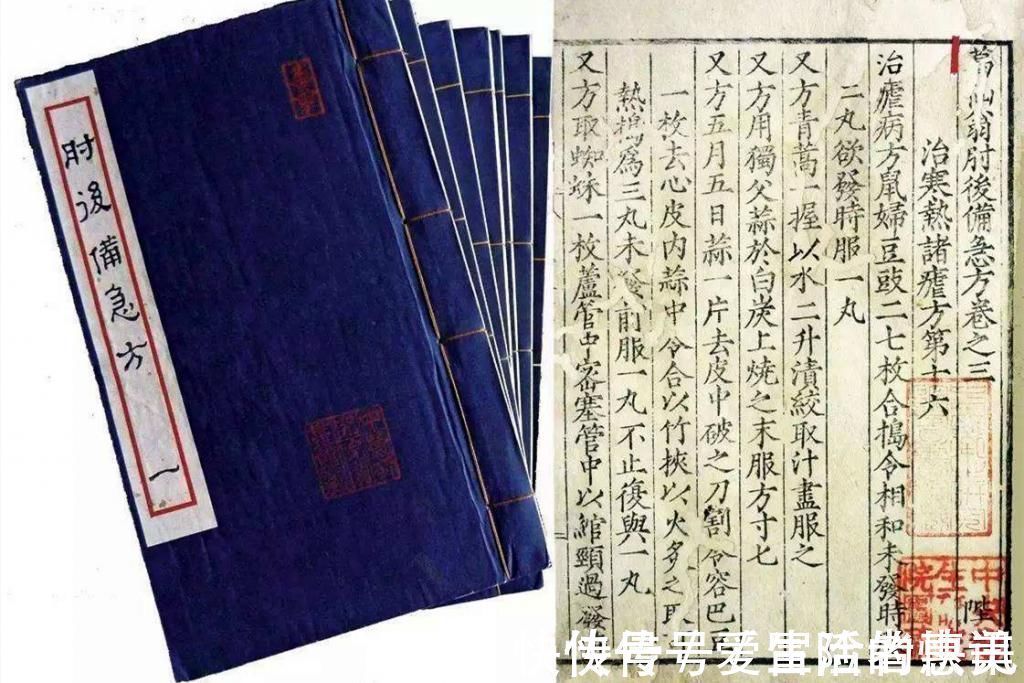 肘後備急方 一
葛仙翁肘後備急方卷之三
治寒熱諸瘧方第十六
治瘧病方鼠婦豆豉二七枚合搗令相和未發時
二丸欲發時服一丸
又方青蒿一握以水二升漬絞取汁盡服之
又方用獨父蒜於白炭上燒之末服方寸七
又方五月五日蒜一片去皮中破之刀割令容巴豆
一枚去心皮內蒜中令合以竹挾以火炙之取
熱搗爲三丸未發前服一丸不止復與一丸
又方取蜘蛛一枚蘆管中密塞管中以綰頸過發